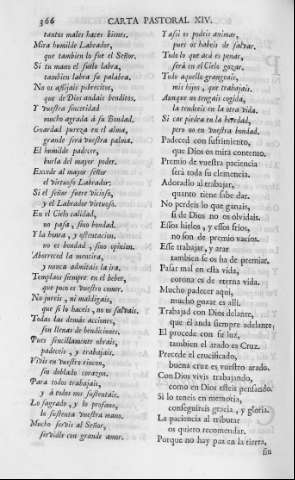 366 CARTA PASTORAL XIV.
tantos males hacer bienes.
Mira humilde Labrador,
que tambien lo fue el Señor.
Si tu mano el suelo labra,
tambien labra su palabra.
No os aflijais pobrecitos,
que de Dios andais benditos.
Y vuestra sinceridad
mucho agrada à su Bondad.
Guardad pureza en el alma,
grande será vuestra palma.
El humilde padecer,
burla del mayor poder.
Excede al mayor señor
el virtuoso Labrador.
Si el señor fuere vicioso,
y el Labrador virtuoso.
En el Cielo calidad,
no pasa, sino bondad.
Y la honra, y ostentacion,
no es bondad, sino opinion.
Aborreced la mentira,
y nunca admitais la ira,
Templaos siempre en el beber,
que poco es vuestro comer.
No jureis, ni maldigais,
que si lo haceis, no os salvais.
Todas las demás acciones,
son llenas de bendiciones.
Pues sencillamente obrais,
padeceis, y trabajais.
Vivis en vuestro rincon,
sin doblado corazon.
Para todos trabajais,
y à todos nos sustentais.
Lo sagrado, y lo profano,
lo sustenta vuestra mano.
Mucho servis al Señor,
servidle con grande amor.
Y assi os podeis animar,
pues os habeis de salvar.
Todo lo que acá os penar,
será en el Cielo gozar.
Todo aquello grangeais,
mis hijos, que trabajais.
Aunque no tengais cogida,
la tendreis en la otra vida.
Si cae piedra en la heredad,
pero no en vuestra bondad.
Padeced con sufrimiento,
que Dios os mira contento.
Premio de vuestra paciencia
será toda su clemencia.
Adoradlo al trabajar,
quanto tiene sabe dar.
No perdeis lo que ganais,
si de Dios no os olvidais.
Essos hielos, y essos frios,
no son de premio vacios.
Esse trabajar, y arar
tambien se os ha de premiar.
Pasar mal en esta vida,
corona es de eterna vida.
Mucho padecer aqui,
mucho gozar es allí.
Trabajad con Dios delante,
que él anda siempre adelante;
El procede con su luz,
tambien el arado es Cruz.
Precede el crucificado,
buena cruz es vuestro arado.
Con Dios vivis trabajando,
como en Dios esteis pensando.
Si lo teneis en memoria,
conseguireis gracia, y gloria.
La paciencia al tributar
os quiero recomendar.
Porque no hay paz en la tierra,
sin